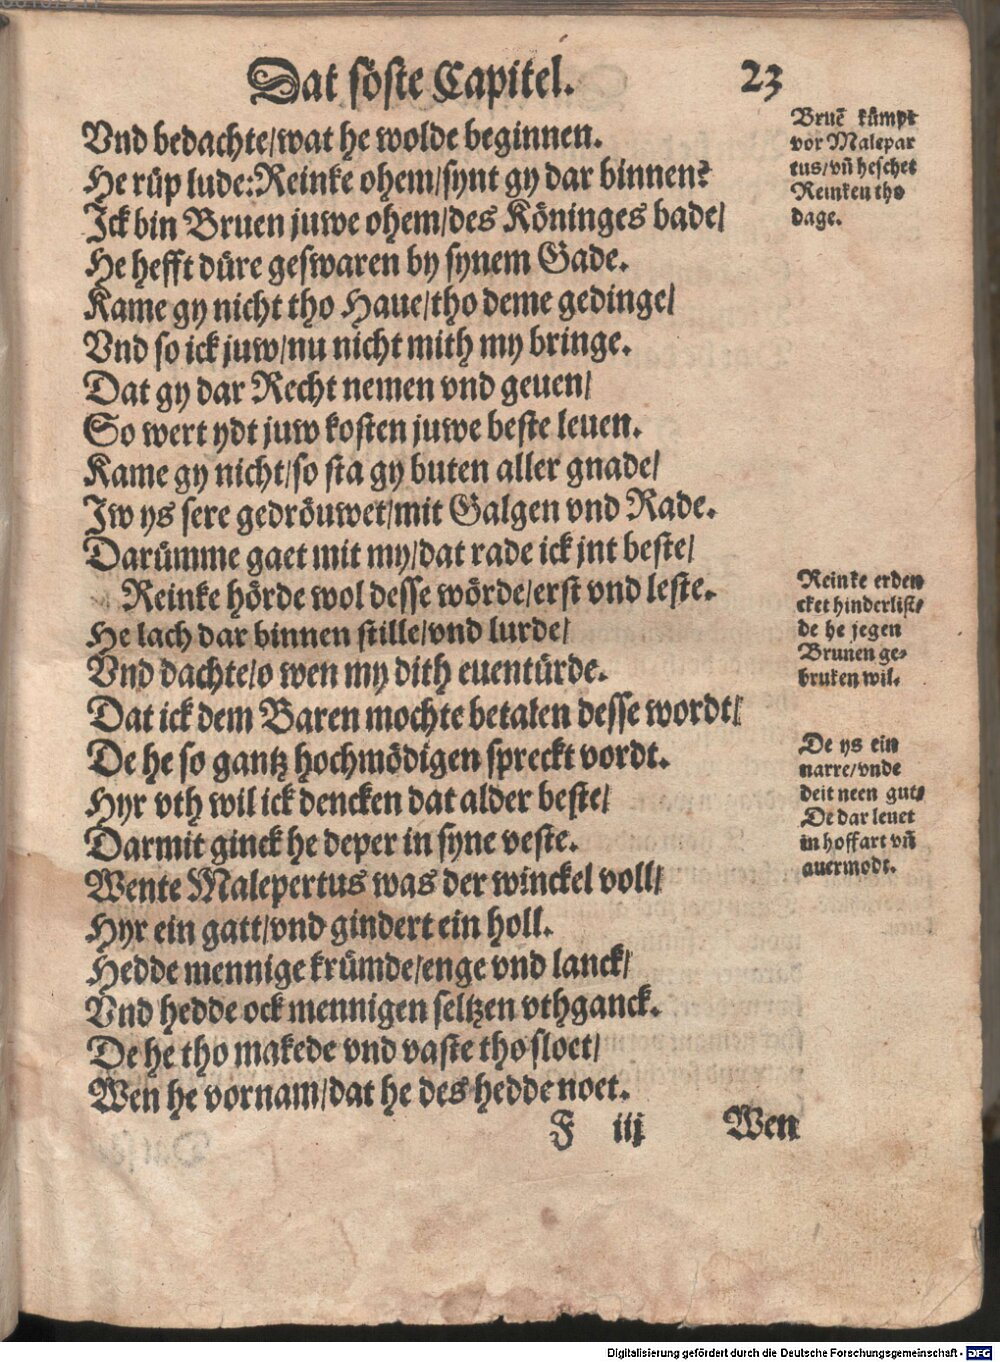 Dat söste Capitel. 23
Vnd bedachte/wat he wolde beginnen.
He rüp lude:Reinke ohem/synt gy dar binnen?
Ick bin Bruen juwe ohem/des Köninges bade/
He hefft düre geswaren by synem Gade.
Kame gy nicht tho Haue/tho deme gedinge/
Vnd so ick juw/nu nicht mith my bringe.
Dat gy dar Recht nemen vnd geuen/
So wert ydt juw kosten juwe beste leuen.
Kame gy nicht/so sta gy buten aller gnade/
Jw ys sere gedröuwet/mit Galgen vnd Rade.
Darümme gaet mit my/dat rade ick jnt beste/
Reinke hörde wol desse wörde/erst vnd leste.
He lach dar binnen stille/vnd lurde/
Vnd dachte/o wen my dith euentürde.
Dat ick dem Baren mochte betalen desse wordt/
De he so gantz hochmödigen spreckt vordt.
Hyr vth wil ick dencken dat alder beste/
Darmit ginck he deper in syne veste.
Wente Malepertus was der winckel voll/
Hyr ein gatt/vnd gindert ein holl.
Hedde mennige krümde/enge vnd lanck/
Vnd hedde ock mennigen seltzen vthganck.
De he tho makede vnd vaste tho sloet/
Wen he vornam/dat he des hedde noet.
F iij Wen
Bruē kümpt
vor Malepar
tus/vñ heschet
Reinken tho
dage.
Reinke erden
cket hinderlist/
de he jegen
Brunen ge-
bruken wil.
De ys ein
narre/vnde
deit neen gut/
De dar leuet
in hoffart vñ
auermodt.
Digitalisierung gefördert durch die Deutsche Forschungsgemeinschaft - DFG